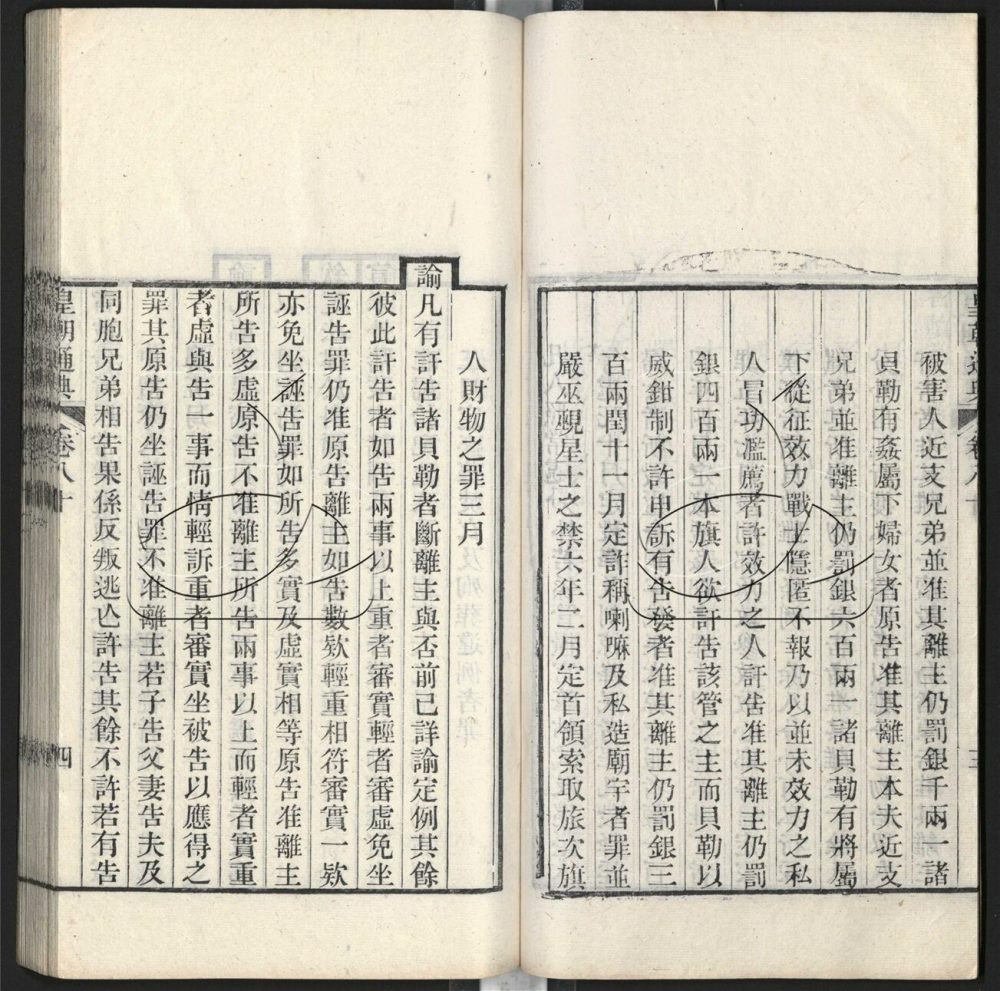 被害人近支兄弟並准其離主仍罰銀千兩一諸
貝勒有姦屬下婦女者原告准其離主本夫近支
兄弟並准離主仍罰銀六百兩一諸貝勒有將屬
下從征效力戰士隱匿不報乃以並未效力之私
人冒功濫薦者許效力之人訐告准其離主仍罰
銀四百兩一本旗人欲訐告該管之主而貝勒以
威鉗制不許申訴有告發者准其離主仍罰銀三
百兩閏十一月定詐稱喇嘛及私造廟宇者罪並
嚴巫覡星士之禁六年二月定首領索取旅次旗
人財物之罪三月
諭凡有訐告諸貝勒者斷離主與否前已詳諭定例其餘
彼此訐告者如告兩事以上重者審實輕者審虛免坐
誣告罪仍准原告離主如告數欵輕重相符審實一欵
亦免坐誣告罪如所告多實及虛實相等原告准離主
所告多虛原告不准離主所告兩事以上而輕者實重
者虛與告一事而情輕訴重者審實坐被告以應得之
罪其原告仍坐誣告罪不准離主若子告父妻告夫及
同胞兄弟相告果係反叛逃亾許告其餘不許若有告
皇朝通典
卷八十
四